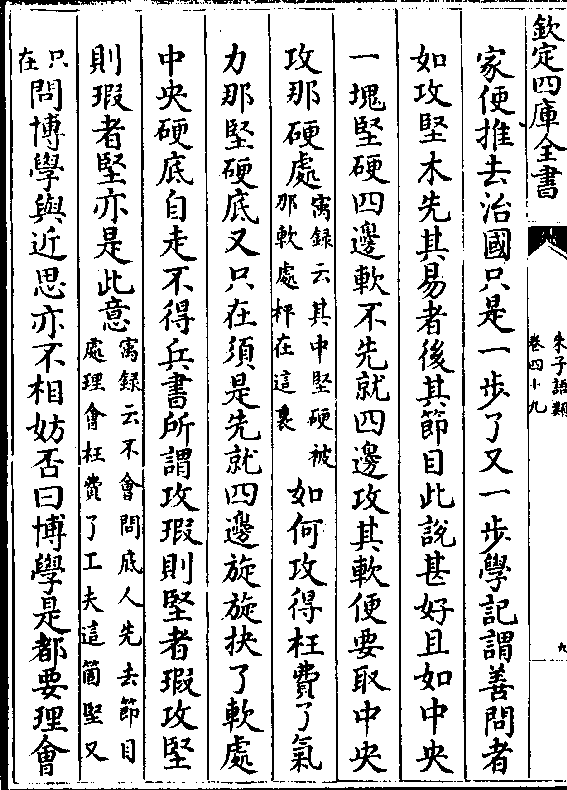 欽定四庫全書
朱子語類
卷四十九
九
家便推去治國只是一步了又一步學記謂善問者
如攻堅木先其易者後其節目此說甚好且如中央
一塊堅硬四邊軟不先就四邊攻其軟便要取中央
攻那硬處㝢錄云其中堅硬被那軟處抨在這裏如何攻得枉費了氣
力那堅硬底又只在須是先就四邊旋旋抉了軟處
中央硬底自走不得兵書所謂攻瑕則堅者瑕攻堅
則瑕者堅亦是此意㝢錄云不會問底人先去節目處理會枉費了工夫這箇堅又
只在問博學與近思亦不相妨否曰博學是都要理會